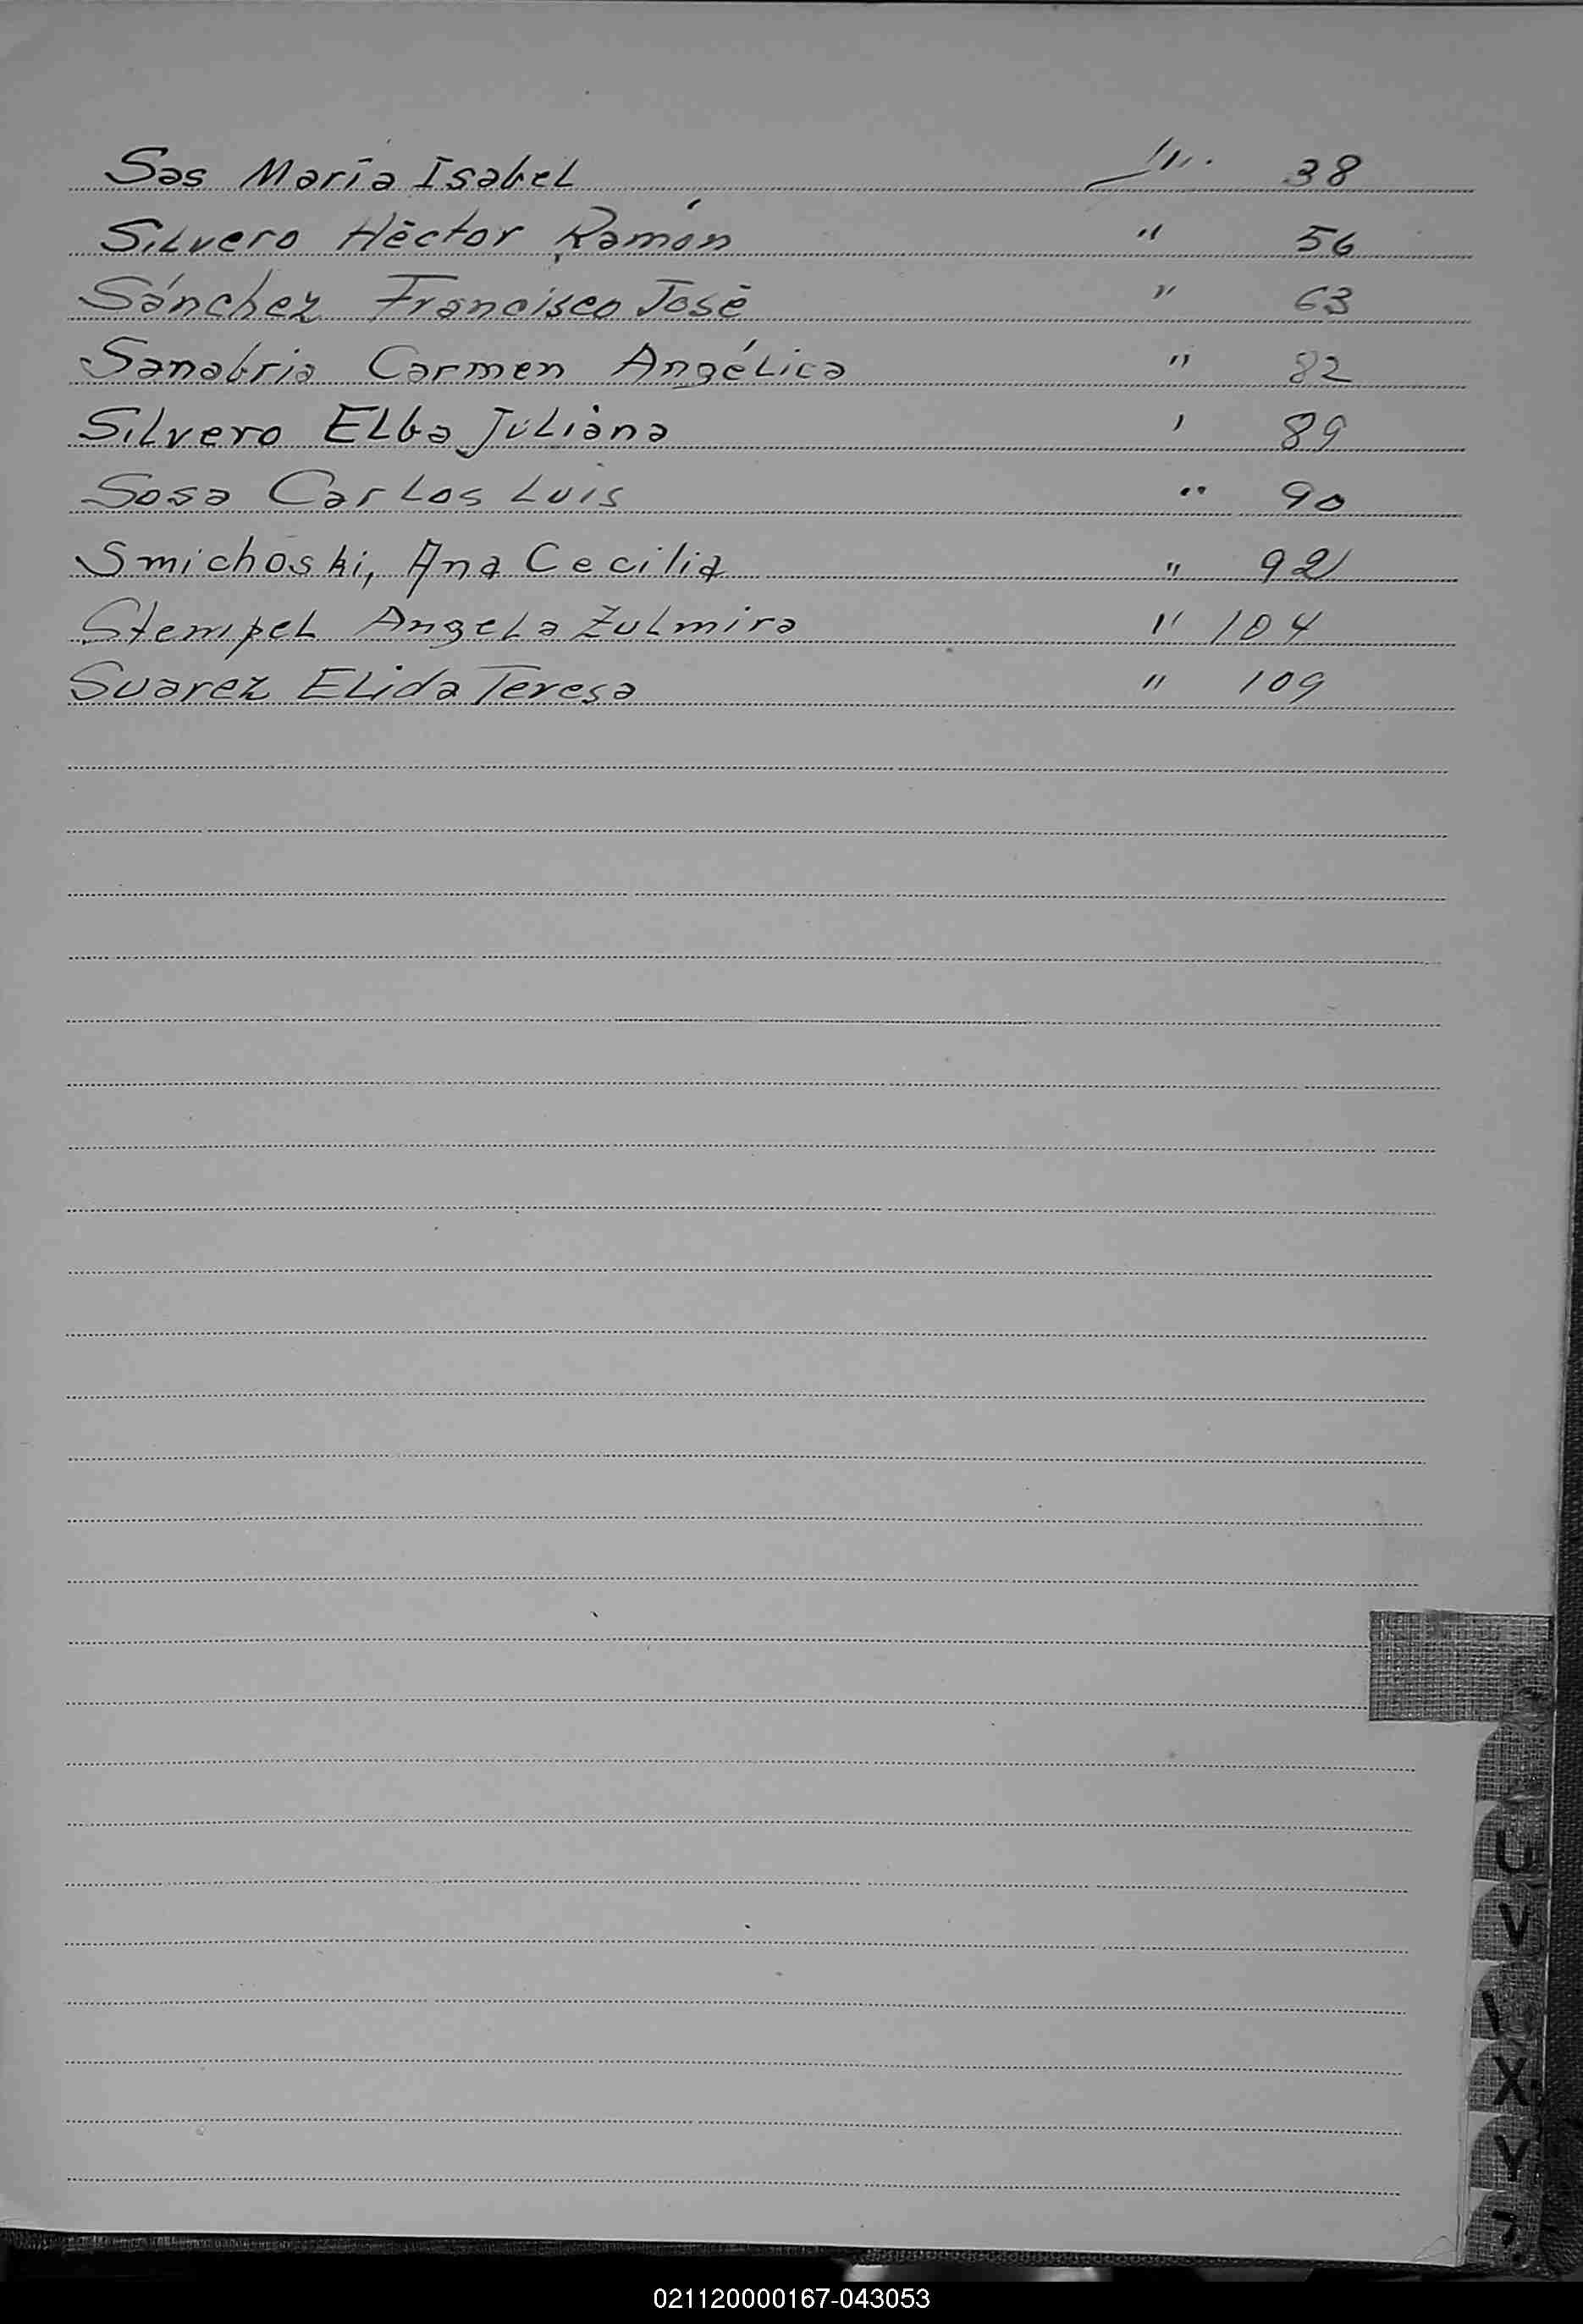 Sas María Isabel 38
Silvero Héctor Ramón " 56
Sánchez Francisco José " 63
Sanabria Carmen Angélica " 82
Silvero Elba Juliana ' 89
Sosa Carlos Luis " 90
Smichoski, Ana Cecilia " 92
Stempel Angela Zulmira " 104
Suarez Elida Teresa " 109
U
V
X
Y
021120000167-043053